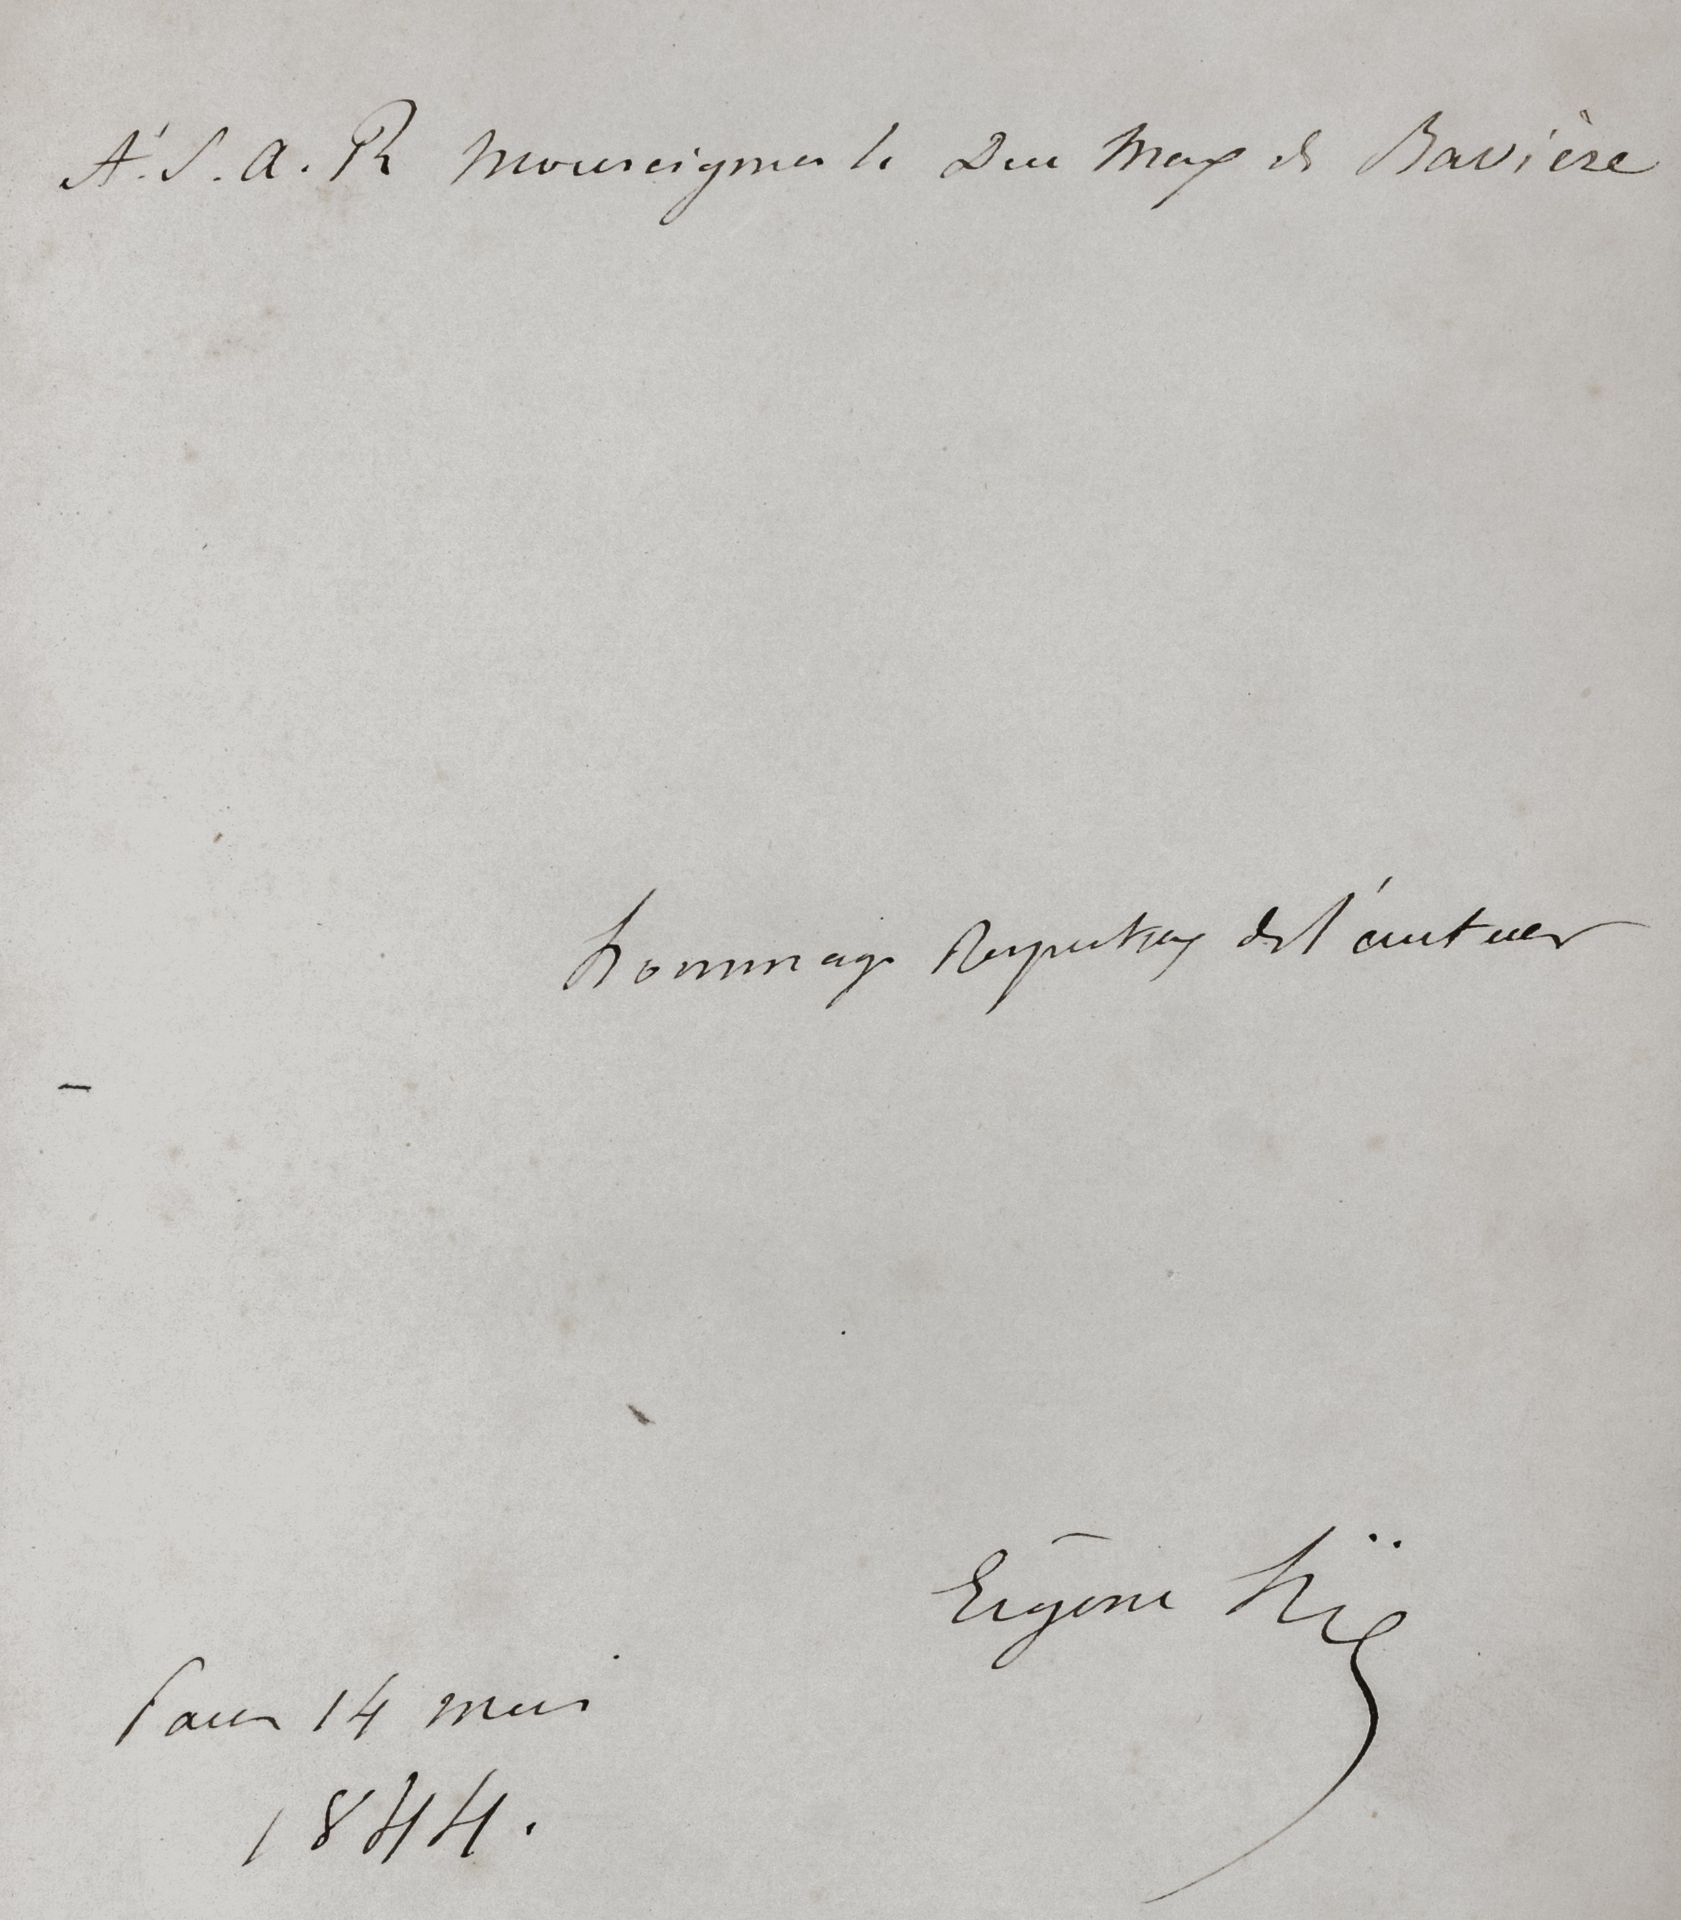 A S. A. R Monseigneur le Duc Max de Bavière
hommage Respectueux de l'auteur
Eugène Süe
Paris 14 mai
1844.